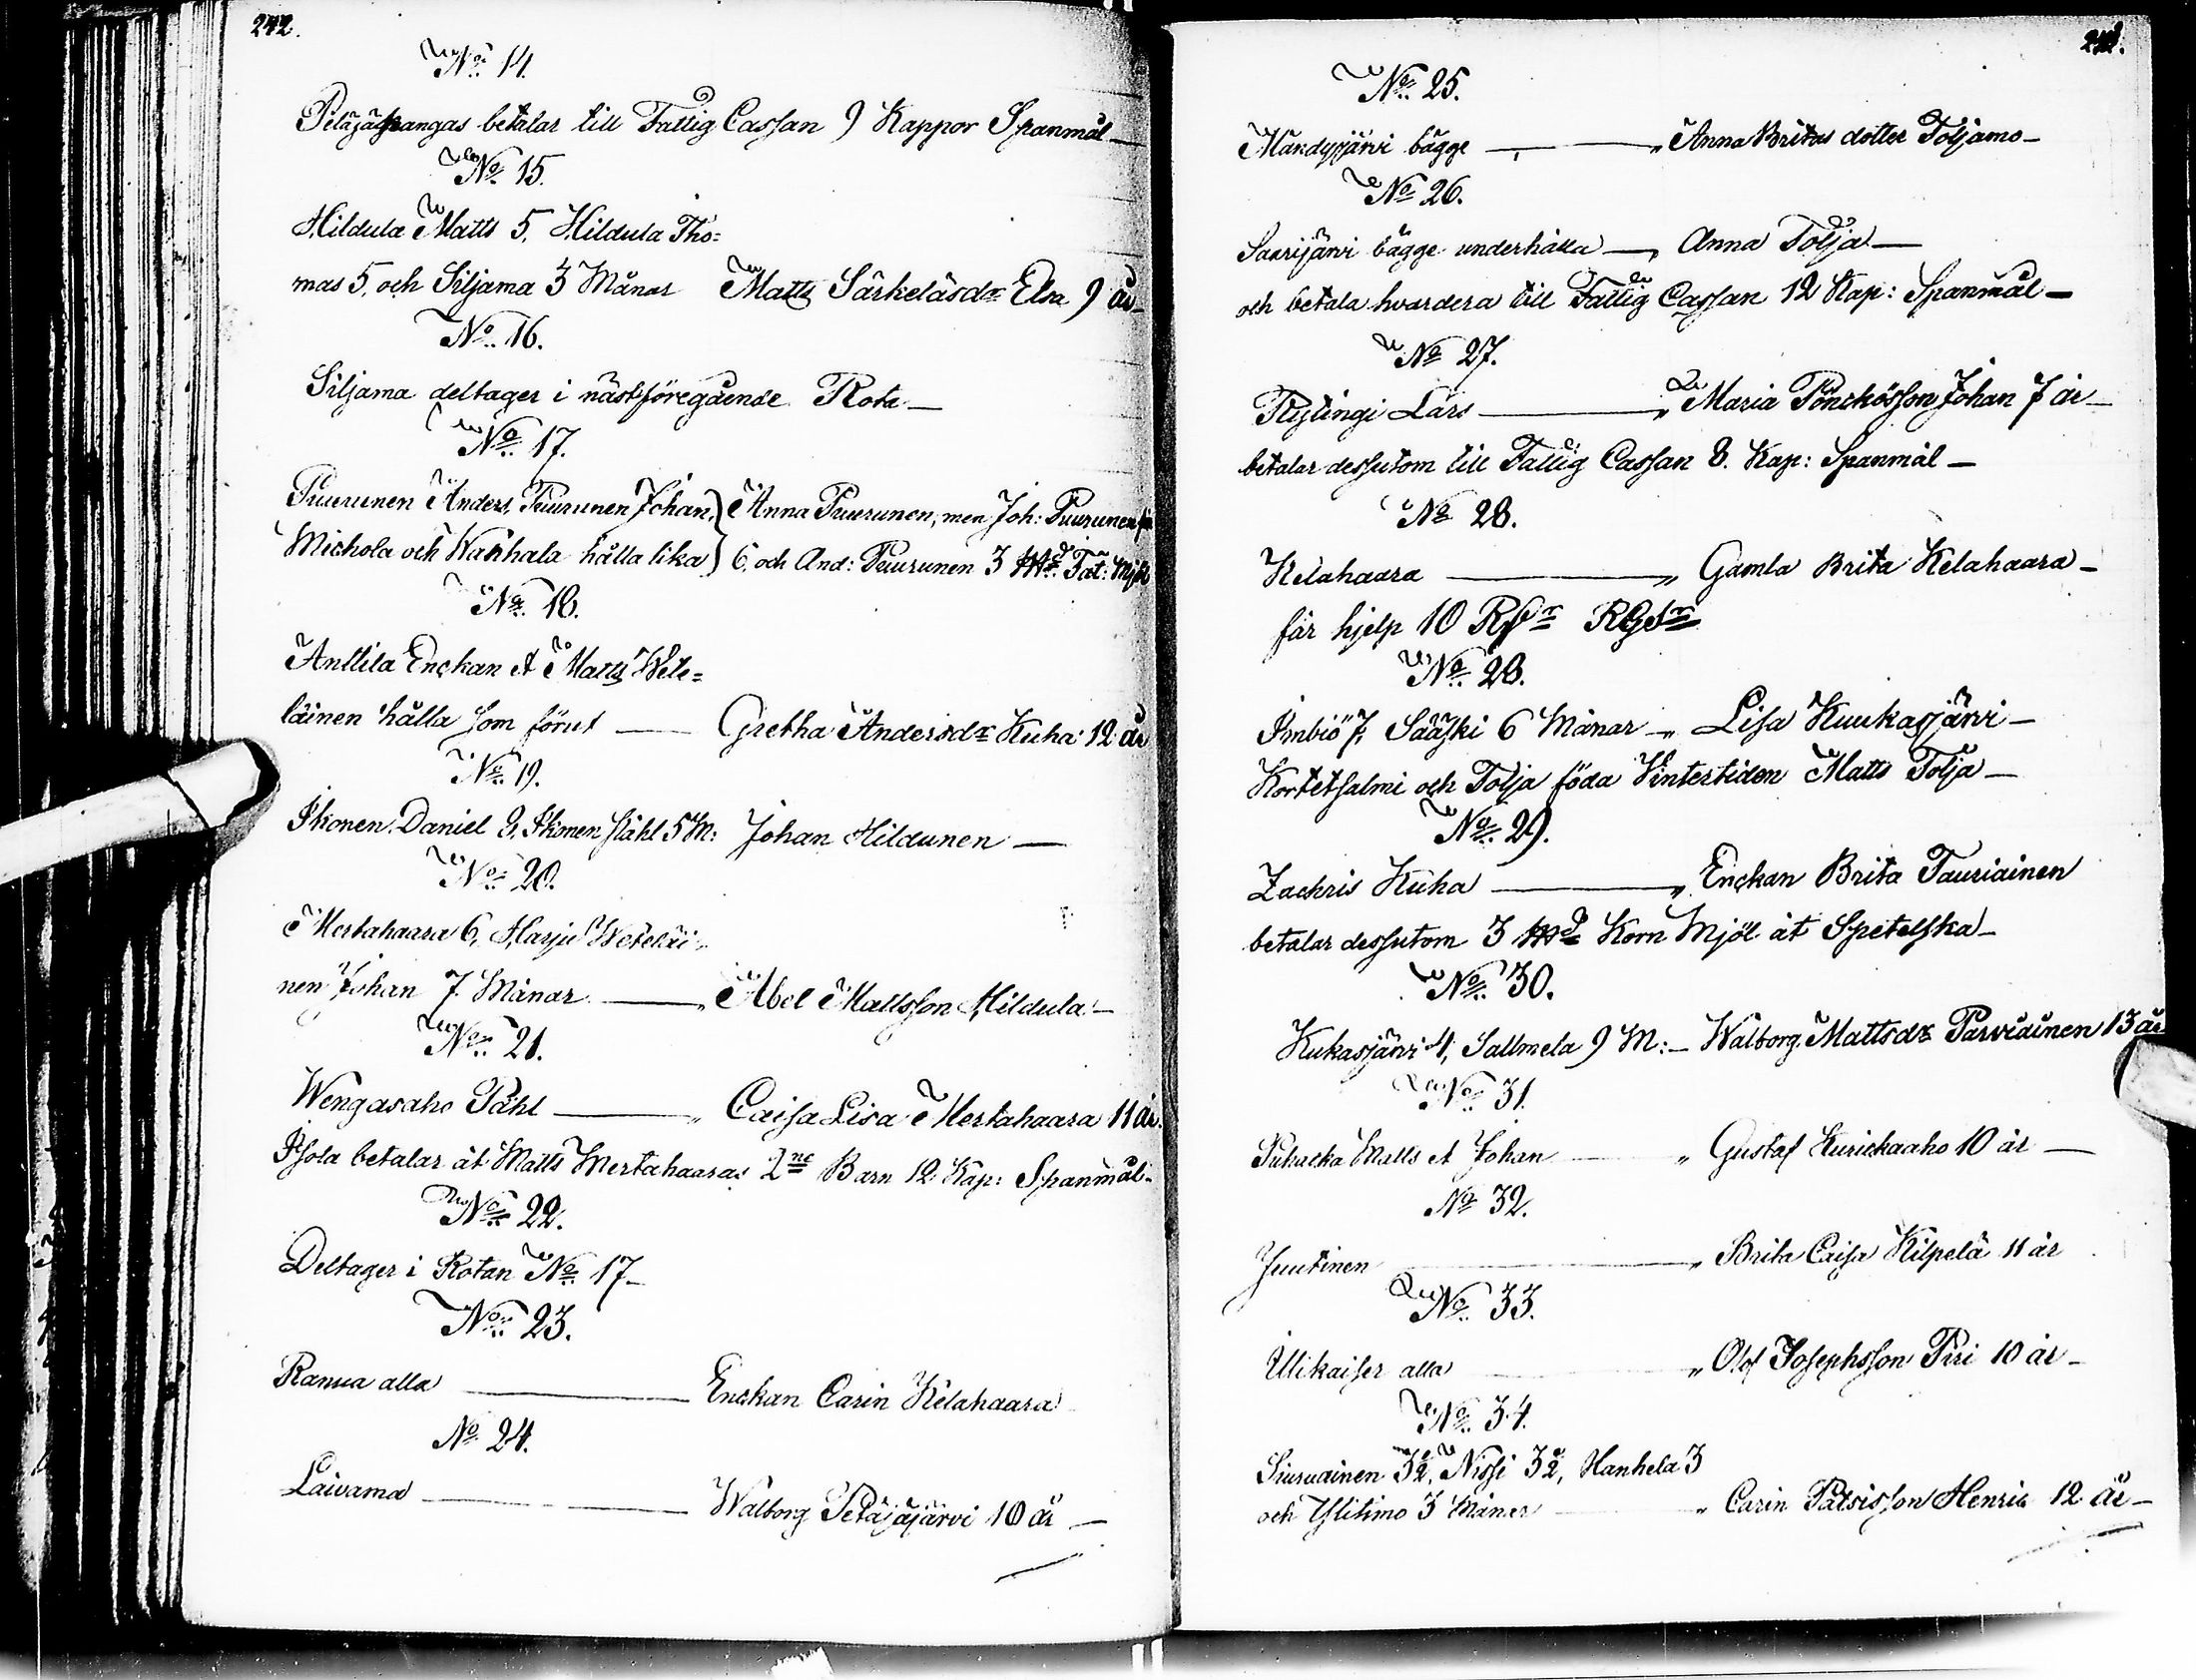 242.
No. 14.
Petäjäkangas betalar till Fattig Cassan 9 Kappor Spanmål —
No. 15.
Hildula Matts 5, Hildula Tho=
mas 5, och Siljama 3 Månar Matts Särkeläsdr Elsa 9 år —
No. 16.
Siljama deltager i nästföregående Rota —
No. 17.
Puurunen Anders, Puurunen Johan, } Anna Puurunen, men Joh: Puurunen
Michola och Wanhala hålla lika } 6. och And: Puurunen 3 Tat: Mjöl
No. 18.
Anttila Enckan et Matts Wete=
läinen hålla som förut — Gretha Andersdr Kuha 12 år
No. 19.
Ikonen Daniel 8, Ikonen Påhl 5 M: Johan Hildunen —
No. 20.
Mertahaara 6, Harju Weteläi=
nen Johan 7 Månar — „ Abel Mattsson Hildula —
No. 21.
Wengasaho Påhl — „ Caisa Lisa Mertahaara 11 år.
Isola betalar åt Matts Mertahaaras 2ne Barn 12 Kap: Spanmål —
No. 22.
Deltager i Rotan No. 17 —
No. 23.
Ranua alla — Enckan Carin Kelahaara
No. 24.
Laivama — Walborg Petäjäjärvi 10 år —
No. 25.
Mändyjärvi bägge — „ Anna Britas dotter Toljamo —
No. 26.
Saarijärvi bägge underhålla — „ Anna Tolja —
och betala hvardera till Fattig Cassan 12 Kap: Spanmål —
No. 27.
Lars — „ Maria Pönckösson Johan 7 år —
betalar dessutom till Fattig Cassan 8. Kap: Spanmål —
No. 28.
Kelahaara — „ Gamla Brita Kelahaara —
får hjelp 10 Rsr RGsr
No. 28.
Imbiö 7, Sääski 6 Månar — „ Lisa Kuukasjärvi —
Kortetsalmi och Tolja föda Vintertiden Matts Tolja —
No. 29.
Zachris Kuha — „ Enckan Brita Tauriainen
betalar dessutom 3 Korn Mjöl åt Spetelska —
No. 30.
Kukasjärvi 4, Sallmela 9 M: — Walborg Mattsdr Parviainen 13 år
No. 31.
Puhacka Matts et Johan — „ Gustaf Kurickaaho 10 år —
No. 32.
Juutinen — „ Brita Caisa Kilpelä 11 år
No. 33.
Ulikaiser alla — „ Olof Josephsson Piri 10 år —
No. 34.
Siuruainen 3½, Nissi 3½, Hanhela 3
och Ylitimo 3 Månar — „ Carin Patsisson Henric 12 år —